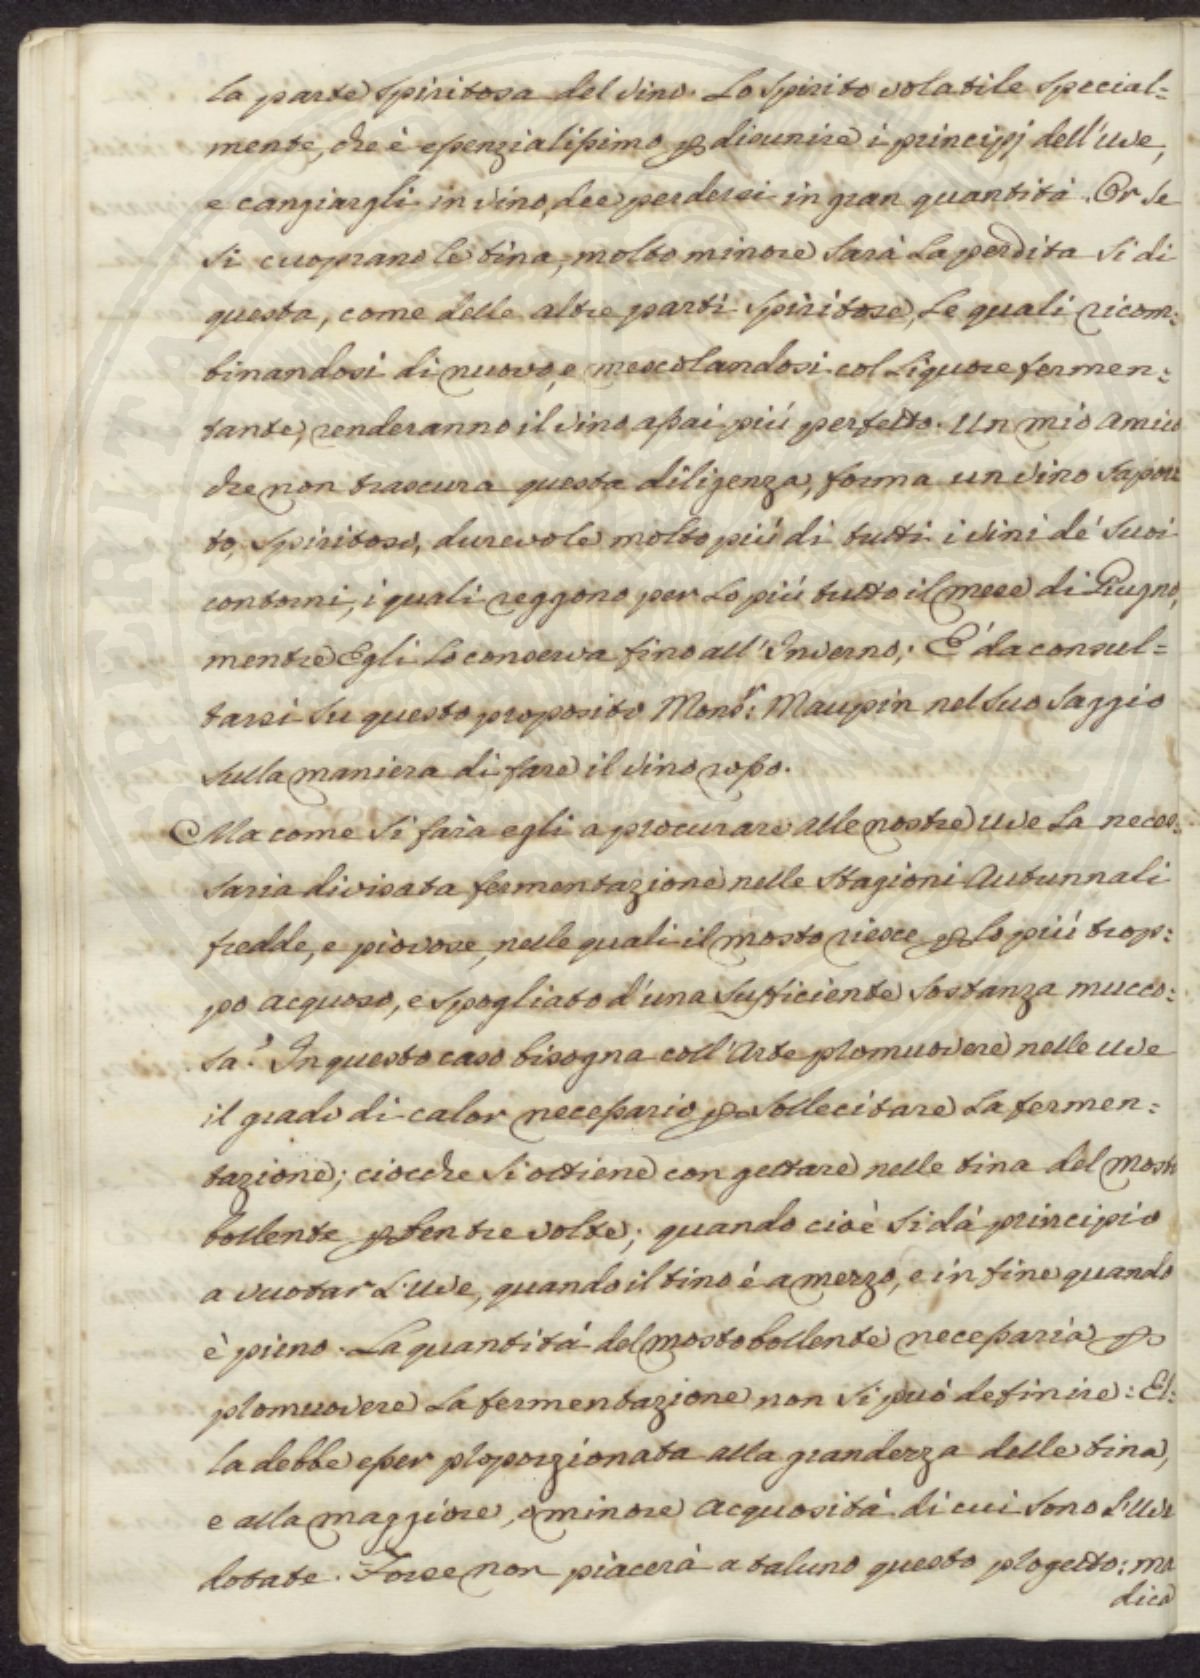 la parte spiritosa del vino. Lo spirito volatile special=
mente, che è essenzialissimo p disunire i principj dell'uve,
e cangiargli in vino, dee perdersi in gran quantità. Or se
si cuoprano le tina, molto minore sarà la perdita si di
questa, come delle altre parti spiritose, le quali ricom:
binandosi di nuovo, e mescolandosi col liquore fermen:
tante, renderanno il vino assai più perfetto. Un mio amico
che non trascura questa diligenza, forma un vino sapori
to, spiritoso, durevole molto più di tutti i vini de' suoi
contorni, i quali reggono per lo più tutto il mese di Giugno,
mentre Egli lo conserva fino all'Inverno; E' da consul=
tarsi su questo proposito Monsr: Maupin nel suo Saggio
sulla maniera di fare il vino rosso.
Ma come si farà egli a procurare alle nostre uve la neces:
saria divisata fermentazione nelle Stagioni Autunnali
fredde, e piovose, nelle quali il mosto riesce p lo più trop:
po acquoso, e spogliato d'una sufficiente sostanza mucco:
sa? In questo caso bisogna coll'Arte promuovere nelle uve
il grado di calor necessario p sollecitare la fermen:
tazione; ciocche si ottiene con gettare nelle tina del mosto
bollente p ben tre volte; quando cioè si dà principio
a vuotar l'uve, quando il tino è a mezzo, e in fine quando
è pieno. La quantità del mosto bollente necessaria p
promuovere la fermentazione non si può definire: El:
la debbe esser proporzionata alla grandezza delle tina,
e alla maggiore, o minore acquosità di cui sono l'uve
dotate. Forse non piacerà a taluno questo progetto: ma
dica